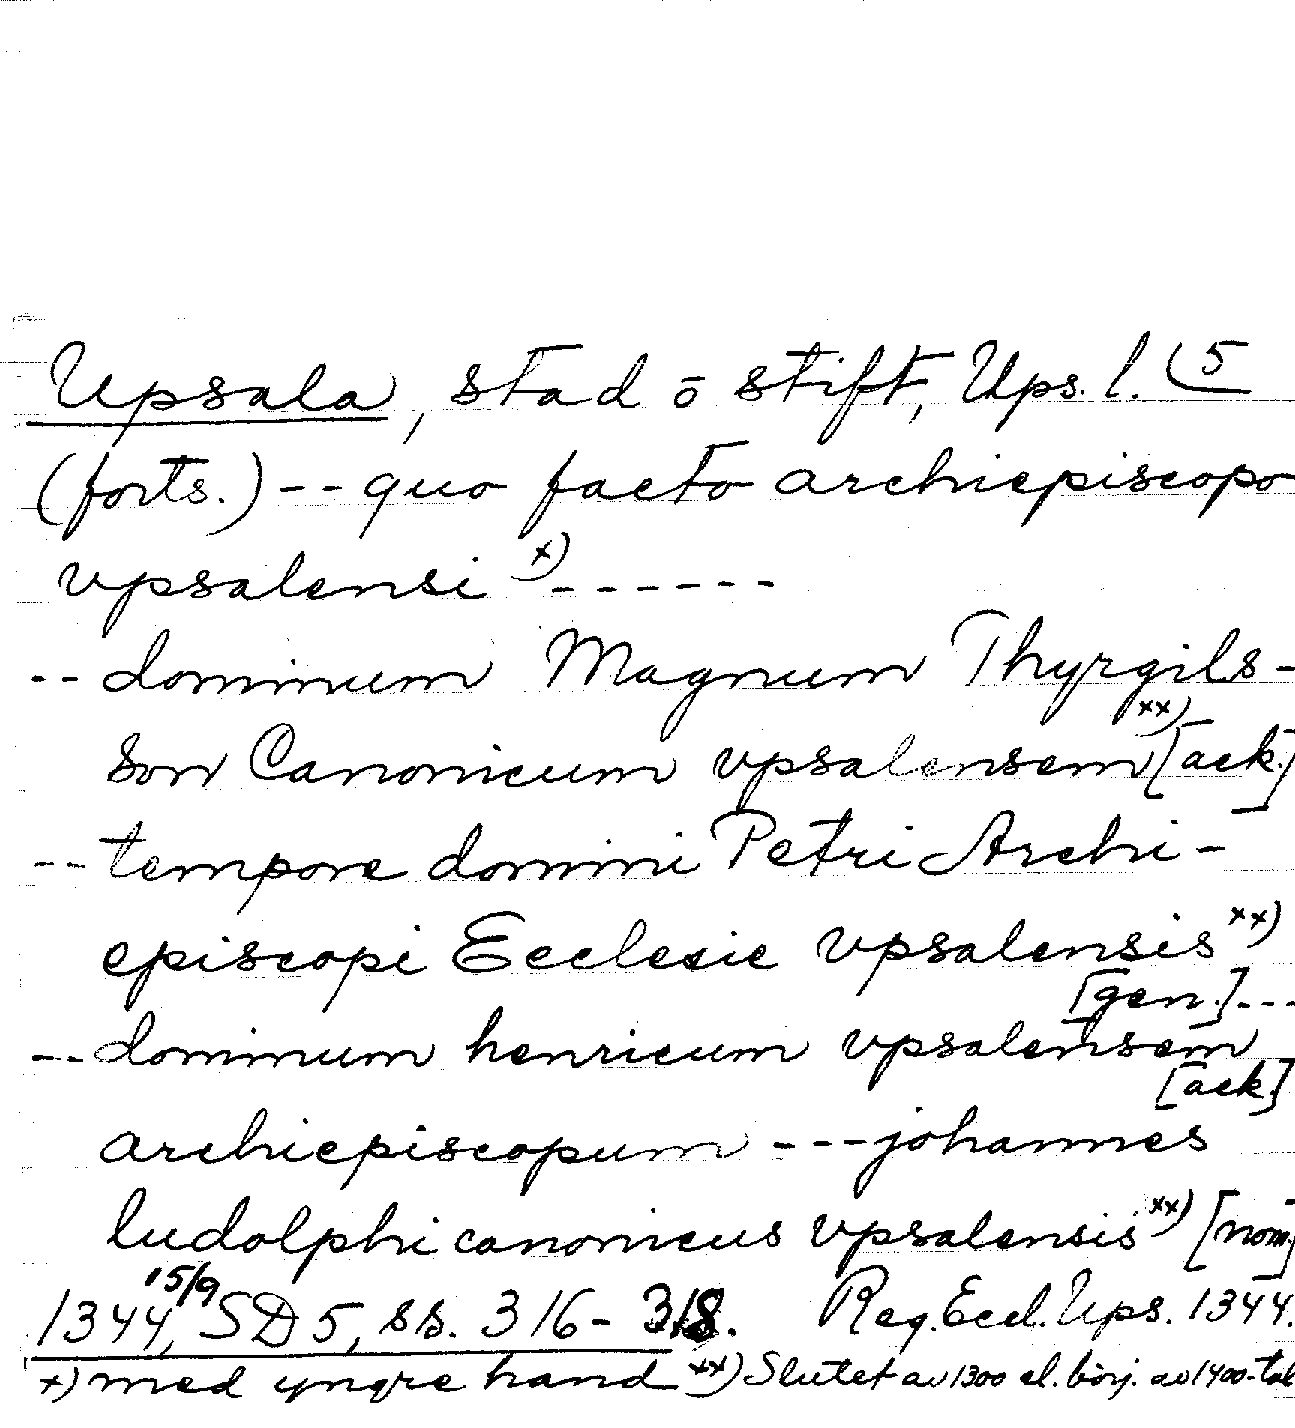 Upsala, stad ō stift, Ups. l. (5
(forts.) -- quo facto archiepiscopo
vpsalensi x) ------
-- dominum Magnum Thyrgils-
son Canonicum vpsalensem xx) [ack.]
-- tempore domini Petri Archi-
episcopi Ecclesie vpsalensis xx)
[gen.] ---
-- dominum henricum vpsalensem
[ack.]
archiepiscopum --- johannes
ludolphi canonicus vpsalensis xx) [nom.]
1344 15/9, SD 5, ss. 316-318. Reg. Eccl. Ups. 1344.
x) med yngre hand xx) Slutet av 1300 el. börj. av 1400-tal